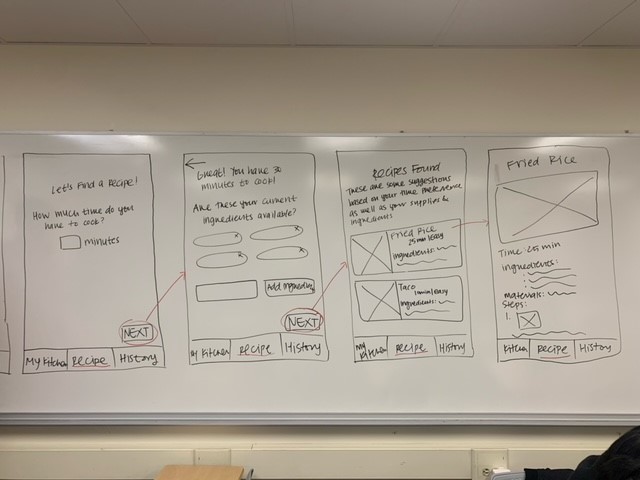 Let's Find a Recipe!
How much time do you
have to cook?
minutes
NEXT
My Kitchen Recipe History
Great! You have 30
minutes to cook!
Are these your current
ingredients available?
Add ingredient
NEXT
My Kitchen Recipe History
Recipes Found
These are some suggestions
based on your time preference
as well as your supplies &
ingredients
Fried Rice
25 min/easy
ingredients:
Taco
min/easy
ingredients:
My
Kitchen Recipe History
Fried Rice
Time: 25 min
ingredients:
materials:
Steps:
1.
Kitchen Recipe History